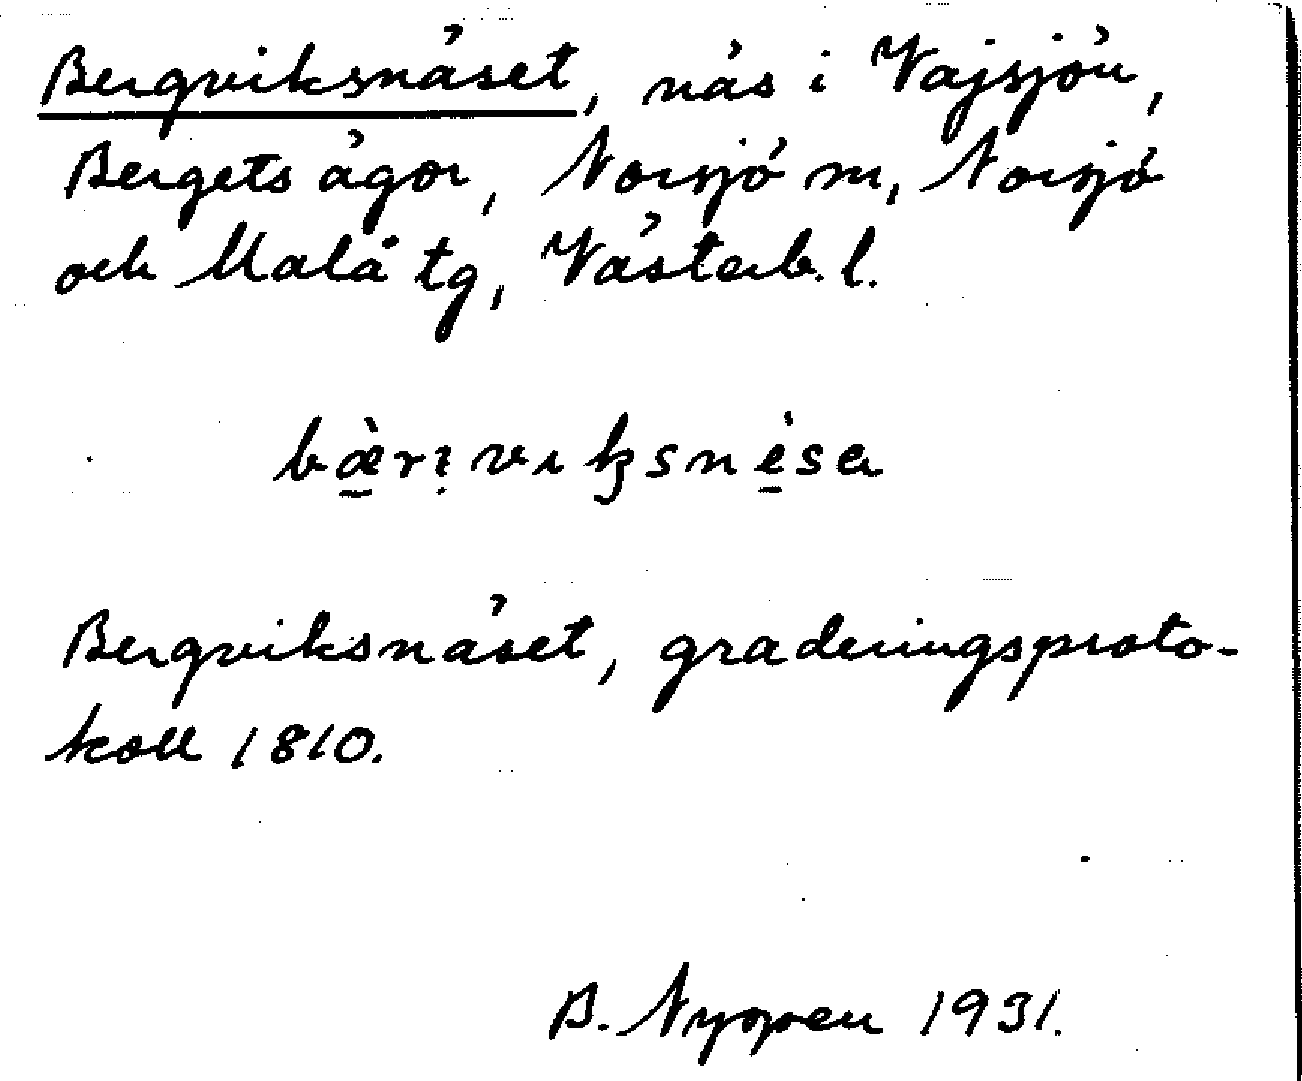 Bergviksnäset, näs i Vajsjön,
Bergets ägor, Norsjö sn, Norsjö
och Malå tg, Västerb. l.
bæ̀rı̣vıksnése
Bergviksnäset, graderingsproto-
koll 1810.
B. Nyopen 1931.